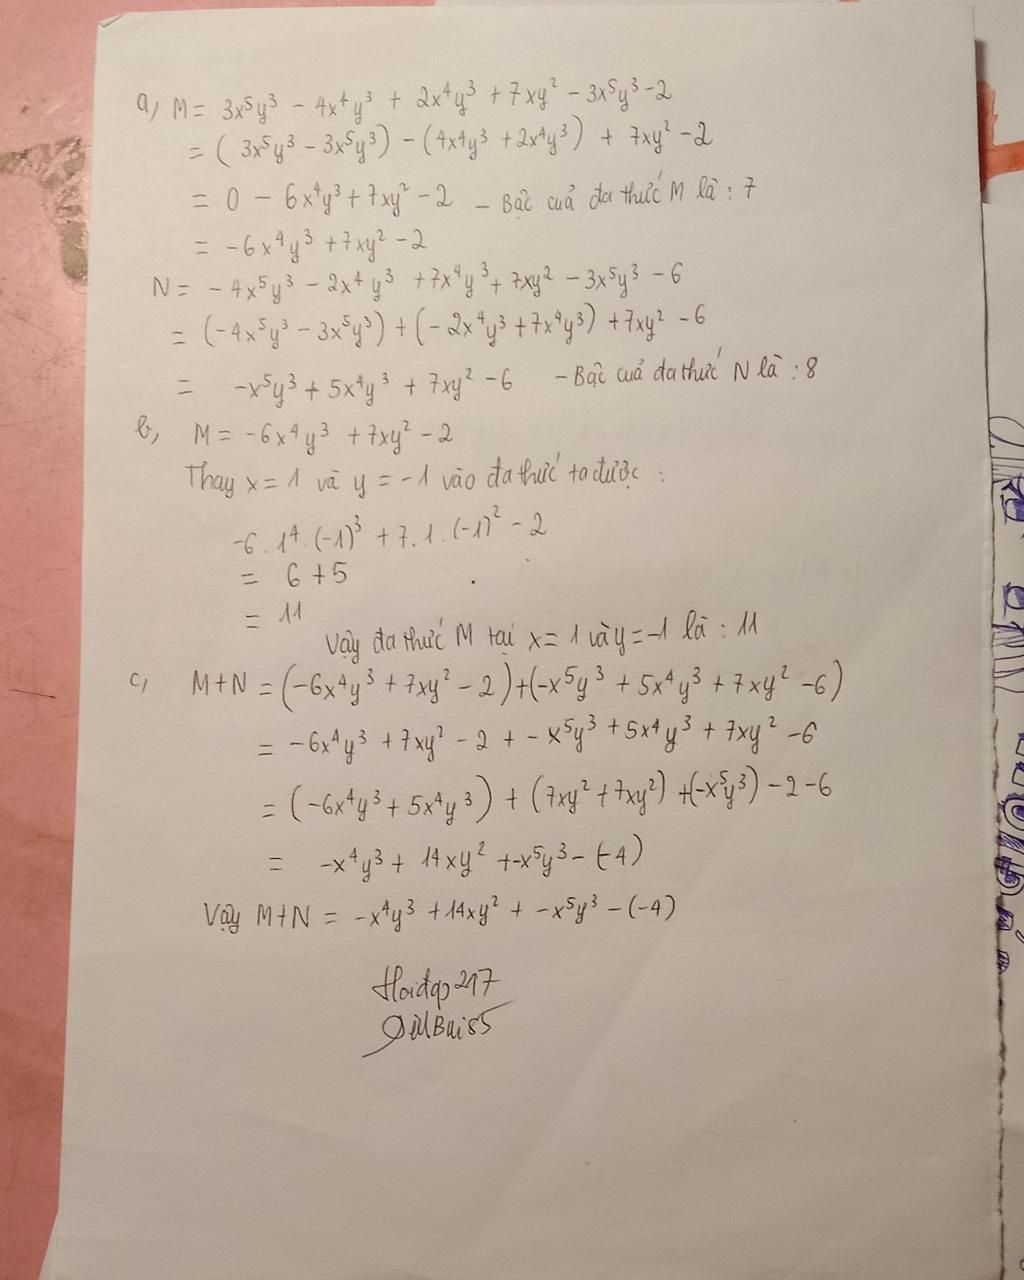 a, M = 3x⁵y³ - 4x⁴y³ + 2x⁴y³ + 7xy² - 3x⁵y³ - 2
= (3x⁵y³ - 3x⁵y³) - (4x⁴y³ + 2x⁴y³) + 7xy² - 2
= 0 - 6x⁴y³ + 7xy² - 2 - Bậc cuả đa thức M là : 7
= -6x⁴y³ + 7xy² - 2
N = - 4x⁵y³ - 2x⁴y³ + 7x⁴y³ + 7xy² - 3x⁵y³ - 6
= (-4x⁵y³ - 3x⁵y³) + (-2x⁴y³ + 7x⁴y³) + 7xy² - 6
= -x⁵y³ + 5x⁴y³ + 7xy² - 6 - Bậc cuả đa thức N là : 8
b, M = -6x⁴y³ + 7xy² - 2
Thay x = 1 và y = -1 vào đa thức ta được :
-6 . 1⁴ . (-1)³ + 7 . 1 . (-1)² - 2
= 6 + 5
= 11
Vậy đa thức M tại x = 1 và y = -1 là : 11
c, M+N = (-6x⁴y³ + 7xy² - 2) + (-x⁵y³ + 5x⁴y³ + 7xy² - 6)
= -6x⁴y³ + 7xy² - 2 + - x⁵y³ + 5x⁴y³ + 7xy² - 6
= (-6x⁴y³ + 5x⁴y³) + (7xy² + 7xy²) + (-x⁵y³) - 2 - 6
= -x⁴y³ + 14xy² + -x⁵y³ - (-4)
Vậy M+N = -x⁴y³ + 14xy² + -x⁵y³ - (-4)
Hoidap247